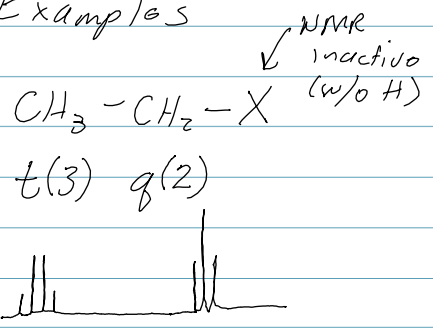 Examples
NMR
inactive
(w/o H)
CH₃ - CH₂ - X
t(3) q(2)